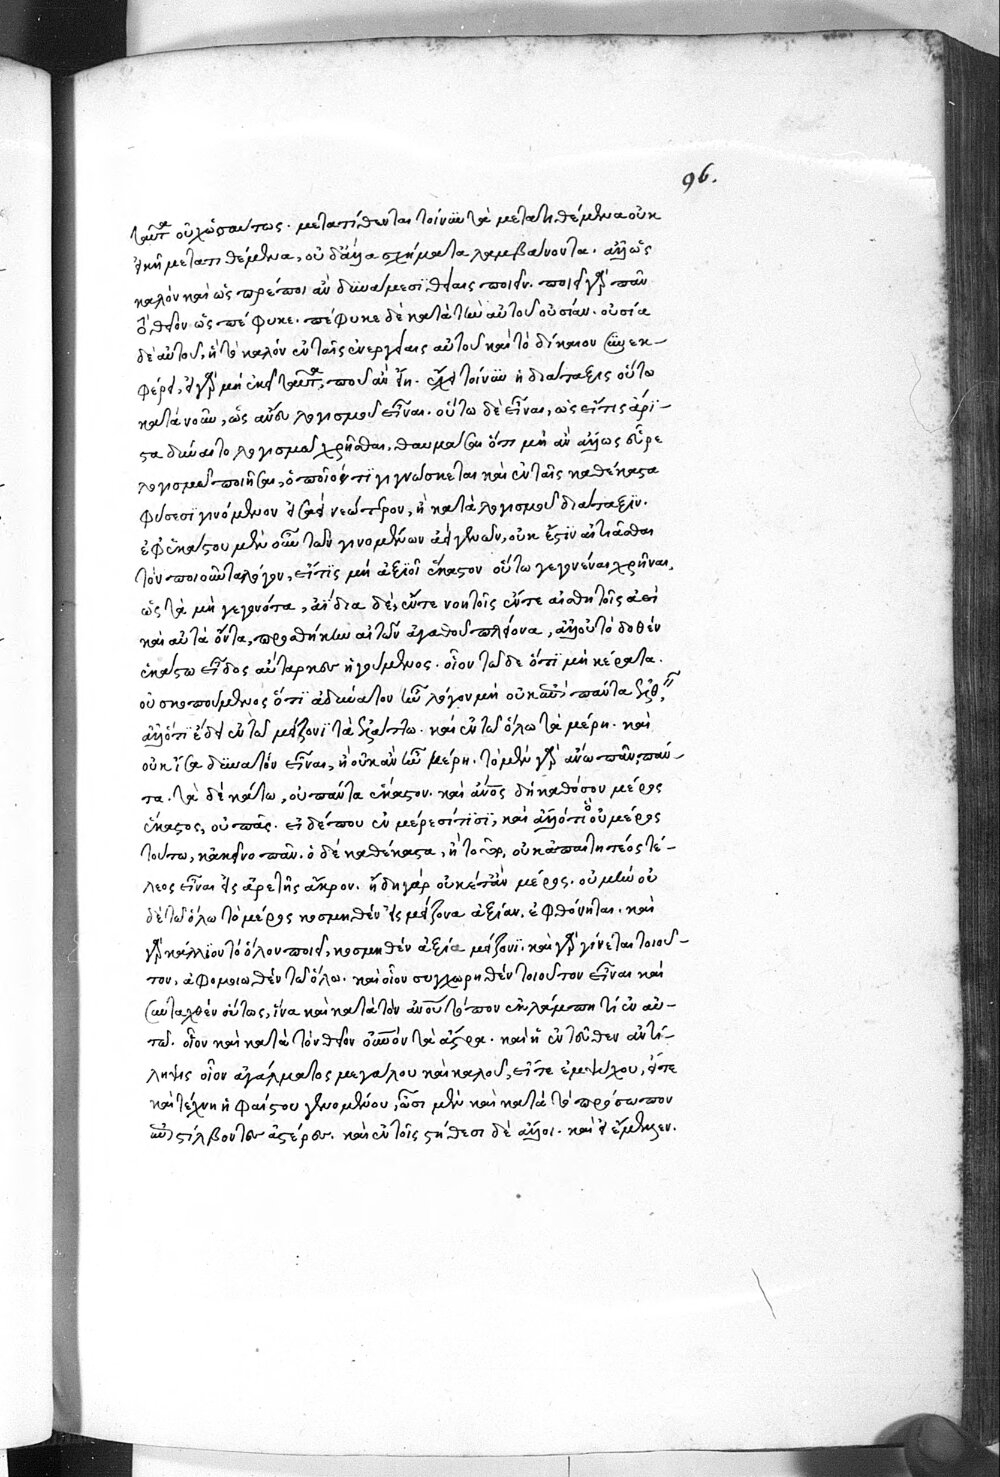 96.
ταῦτα οὐχ ὡσαύτως. μετατίθενται τοίνυν τὰ μετατιθέμενα οὐκ
εἰκῆ μετατιθέμενα, οὐδ' ἄλλα σχήματα λαμβάνοντα. ἀλλ' ὡς
καλὸν καὶ ὡς πρέποι ἂν δυνάμεσι θείαις ποιεῖν. ποιεῖ γὰρ πᾶν
τὸ θεῖον ὡς πέφυκε. πέφυκε δὲ κατὰ τὴν αὐτοῦ οὐσίαν. οὐσία
δὲ αὐτοῦ, ἣ τὸ καλὸν ἐν ταῖς ἐνεργείαις αὐτοῦ καὶ τὸ δίκαιον συνεκ-
φέρει, εἰ γὰρ μὴ ἐκεῖ ταῦτα, ποῦ ἂν εἴη. ἔχει τοίνυν ἡ διάταξις οὕτω
κατὰ νοῦν, ὡς ἄνευ λογισμοῦ εἶναι. οὕτω δὲ εἶναι, ὡς εἴ τις ἄρι-
στα δύναιτο λογισμῷ χρῆσθαι, θαυμάσαι ὅτι μὴ ἂν ἄλλως εὗρε
λογισμὸς ποιῆσαι, ὁποῖόν τι γιγνώσκεται καὶ ἐν ταῖς καθέκαστα
φύσεσι γινόμενον εἰσαεὶ νεώτερον, ἢ κατὰ λογισμοῦ διάταξιν.
ἐφ' ἑκάστου μὲν οὖν τῶν γινομένων ἀεὶ γενῶν, οὐκ ἔστιν αἰτιᾶσθαι
τὸν ποιοῦντα λόγον, εἴ τις μὴ ἀξιοῖ ἕκαστον οὕτω γεγονέναι χρῆναι,
ὡς τὰ μὴ γεγονότα, ἀΐδια δὲ, ἔν τε νοητοῖς ἔν τε αἰσθητοῖς ἀεὶ
κατὰ αὐτὰ ὄντα, προσθήκην αἰτῶν ἀγαθοῦ πλείονα, ἀλλ' οὐ τὸ δοθὲν
ἑκάστω εἶδος αὔταρκες ἡγούμενος. οἷον τῶδε ὅτι μὴ κέρατα.
οὐ σκοπούμενος ὅτι ἀδύνατον ἦν λόγον μὴ οὐκ ἐπὶ πάντα ἐλθεῖν,
ἀλλ' ὅτι ἔδει ἐν τῶ μείζονι τὰ ἐλάττω. καὶ ἐν τῶ ὅλω τὰ μέρη. καὶ
οὐκ ἴσα δυνατὸν εἶναι, ἢ οὐκ ἂν ἦν μέρη. τὸ μὲν γὰρ ἄνω πᾶν πάν-
τα. τὰ δὲ κάτω, οὐ πάντα ἕκαστον. καὶ ἄνθρωπος δὴ καθόσον μέρος
ἕκαστος, οὐ πᾶς. εἰ δέ που ἐν μέρεσί τισι, καὶ ἄλλό τι ὃ οὐ μέρος
τούτω, κἀκεῖνο πᾶν. ὁ δὲ καθέκαστα, ἧ τοῦτο, οὐκ ἀπαιτητέος τέ-
λεος εἶναι εἰς ἀρετῆς ἄκρον. ἤδη γὰρ οὐκέτ' ἂν μέρος. οὐ μὴν οὐ-
δὲ τῶ ὅλω τὸ μέρος κοσμηθὲν εἰς μείζονα ἀξίαν, ἐφθόνηται. καὶ
γὰρ κάλλιον τὸ ὅλον ποιεῖ, κοσμηθὲν ἀξία μείζονι. καὶ γὰρ γίνεται τοιοῦ-
τον, ἀφομοιωθὲν τῶ ὅλω. καὶ οἷον συγχωρηθὲν τοιοῦτον εἶναι καὶ
συνταχθὲν οὕτως, ἵνα καὶ κατὰ τὸν ἀνθρώπου τόπον ἐκλάμπη τί ἐν αὐ-
τῶ. οἷον καὶ κατὰ τὸν θεῖον οὐρανὸν τὰ ἄστρα. καὶ ἢ ἐντεῦθεν ἀντί-
ληψις οἷον ἀγάλματος μεγάλου καὶ καλοῦ, εἴτε ἐμψύχου, εἴτε
καὶ τέχνη ἡφαίστου γενομένου, ὧ εἰσι μὲν καὶ κατὰ τὸ πρόσωπον
ἐπιστίλβοντες ἀστέρες. καὶ ἐν τοῖς στήθεσι δὲ ἄλλοι. καὶ ἧ ἔμελλεν.